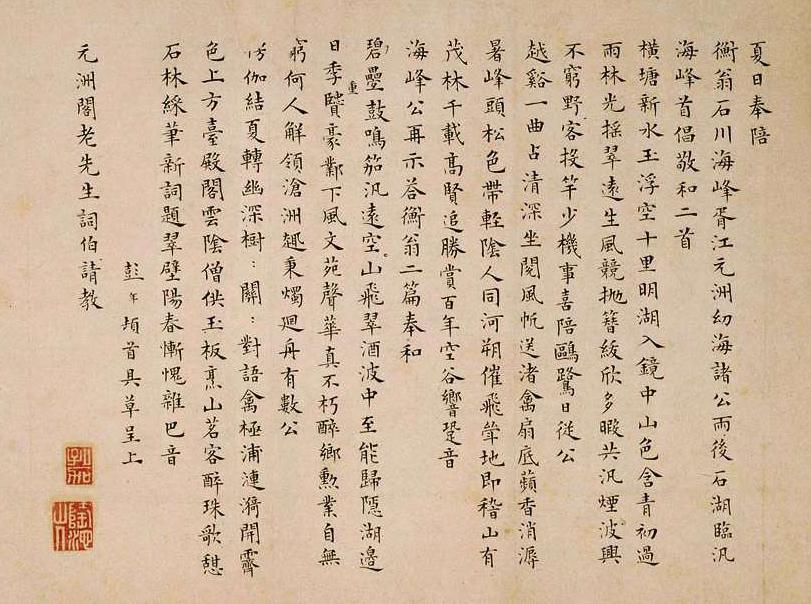 夏日奉陪
衡翁石川海峰胥江元洲幼海諸公雨後石湖臨汎
海峰首倡敬和二首
橫塘新水玉浮空十里明湖入鏡中山色含青初過
雨林光搖翠遠生風競拋簪紱欣多暇共汎煙波興
不窮野客投竿少機事喜陪鷗鷺日從公
越谿一曲占清深坐閱風帆送渚禽扇底蘋香消溽
暑峰頭松色帶輕陰人同河朔催飛斝地即稽山有
茂林千載高賢追勝賞百年空谷響跫音
海峰公再示荅衡翁二篇奉和
碧疊鼓鳴笳汎遠空山飛翠洒波中至能歸隱湖邊
重
日季鷹豪鄴下風文苑聲華真不朽醉鄉勳業自無
窮何人解領滄洲趣秉燭迴舟有數公
伽結夏轉幽深樹:關:對語禽極浦漣漪開霽
色上方臺殿閣雲陰僧供玉板烹山茗客醉珠歌憇
石林綵筆新詞題翠壁陽春慚愧雜巴音
彭年頓首具草呈上
元洲閣老先生詞伯請教
孔加